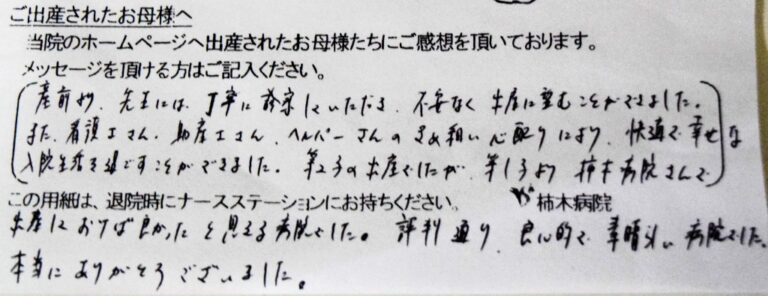 ご出産されたお母様へ
当院のホームページへ出産されたお母様たちにご感想を頂いております。
メッセージを頂ける方はご記入ください。
産前より、先生には、丁寧に診察していただき、不安なく出産に望むことができました。
また、看護士さん、助産士さん、ヘルパーさんのきめ細い心配りにより、快適で幸せな
入院生活を過ごすことができました。第2子の出産でしたが、第1子より柿木病院さんで
この用紙は、退院時にナースステーションにお持ちください。 柿木病院
出産しておけば良かったと思える病院でした。評判通り、良心的で素晴らしい病院でした。
本当にありがとうございました。